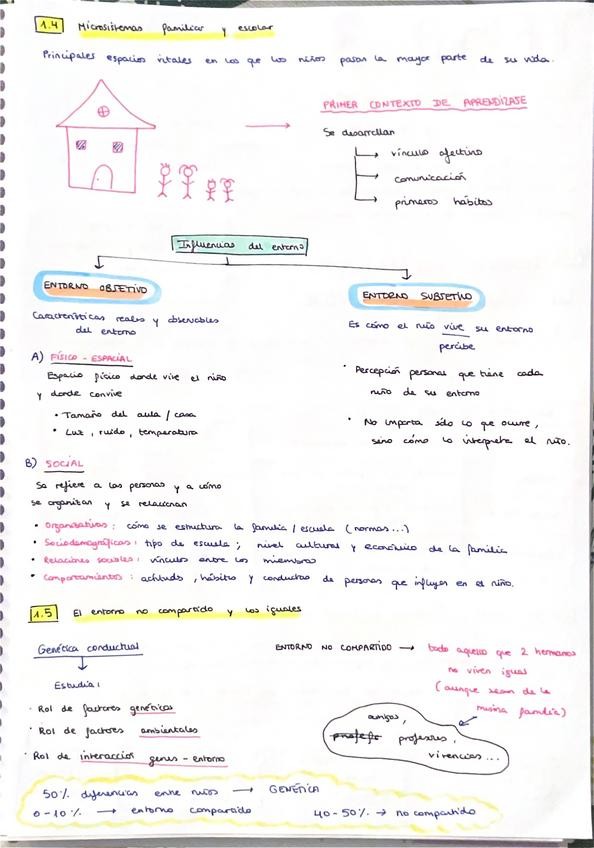 1.4 Microsistemas familiar y escolar
Principales espacios vitales en los que los niños pasan la mayor parte de su vida.
PRIMER CONTEXTO DE APRENDIZAJE
Se desarrollan
vínculo afectivo
comunicación
primeros hábitos
Influencias del entorno
ENTORNO OBJETIVO
Características reales y observables
del entorno
A) FÍSICO - ESPACIAL
Espacio físico donde vive el niño
y donde convive
• Tamaño del aula / casa
• Luz, ruido, temperatura
ENTORNO SUBJETIVO
Es cómo el niño vive su entorno
percibe
• Percepción personal que tiene cada
niño de su entorno
• No importa sólo lo que ocurre,
sino cómo lo interpreta el niño.
B) SOCIAL
Se refiere a las personas y a cómo
se organizan y se relacionan
• Organizativas: cómo se estructura la familia / escuela (normas...)
• Sociodemográficas: tipo de escuela; nivel cultural y económico de la familia
• Relaciones sociales: vínculos entre los miembros
• Comportamientos: actituds, hábitos y conductas de personas que influyen en el niño.
1.5 El entorno no compartido y los iguales
Genética conductual
Estudia:
· Rol de factores genéticos
· Rol de factores ambientales
· Rol de interacción genes - entorno
ENTORNO NO COMPARTIDO → todo aquello que 2 hermanos
no viven igual
(aunque sean de la
misma familia)
amigos,
profefo profesores,
vivencias...
50% diferencias entre niños → GENÉTICA
0-10% → entorno compartido 40-50% → no compartido